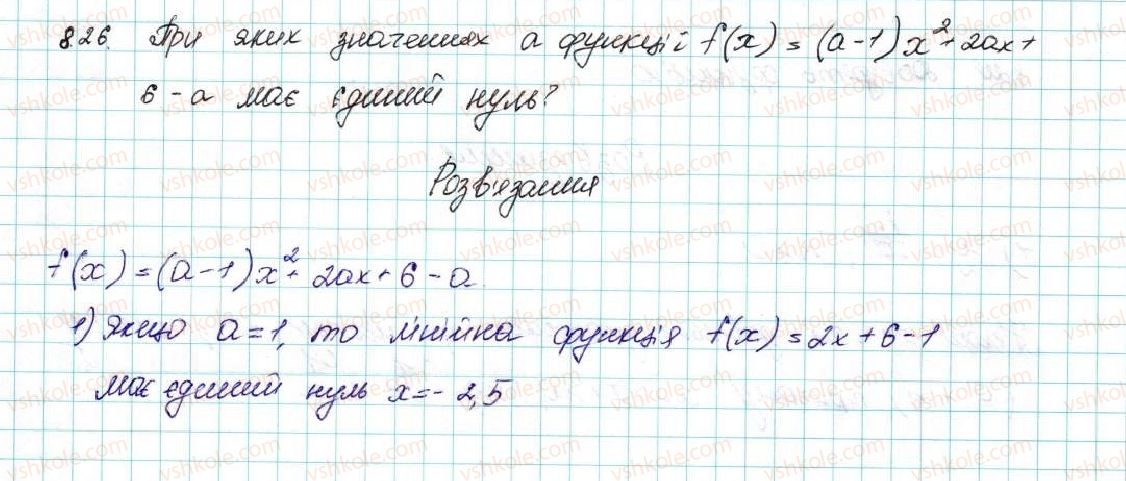 826. При яких значеннях а функції f(x) = (a-1)x²+2ax+
6-a має єдиний нуль?
Розв'язання
f(x)=(a-1)x²+2ax+6-a
1) Якщо a=1, то лінійна функція f(x)=2x+6-1
має єдиний нуль x=-2,5